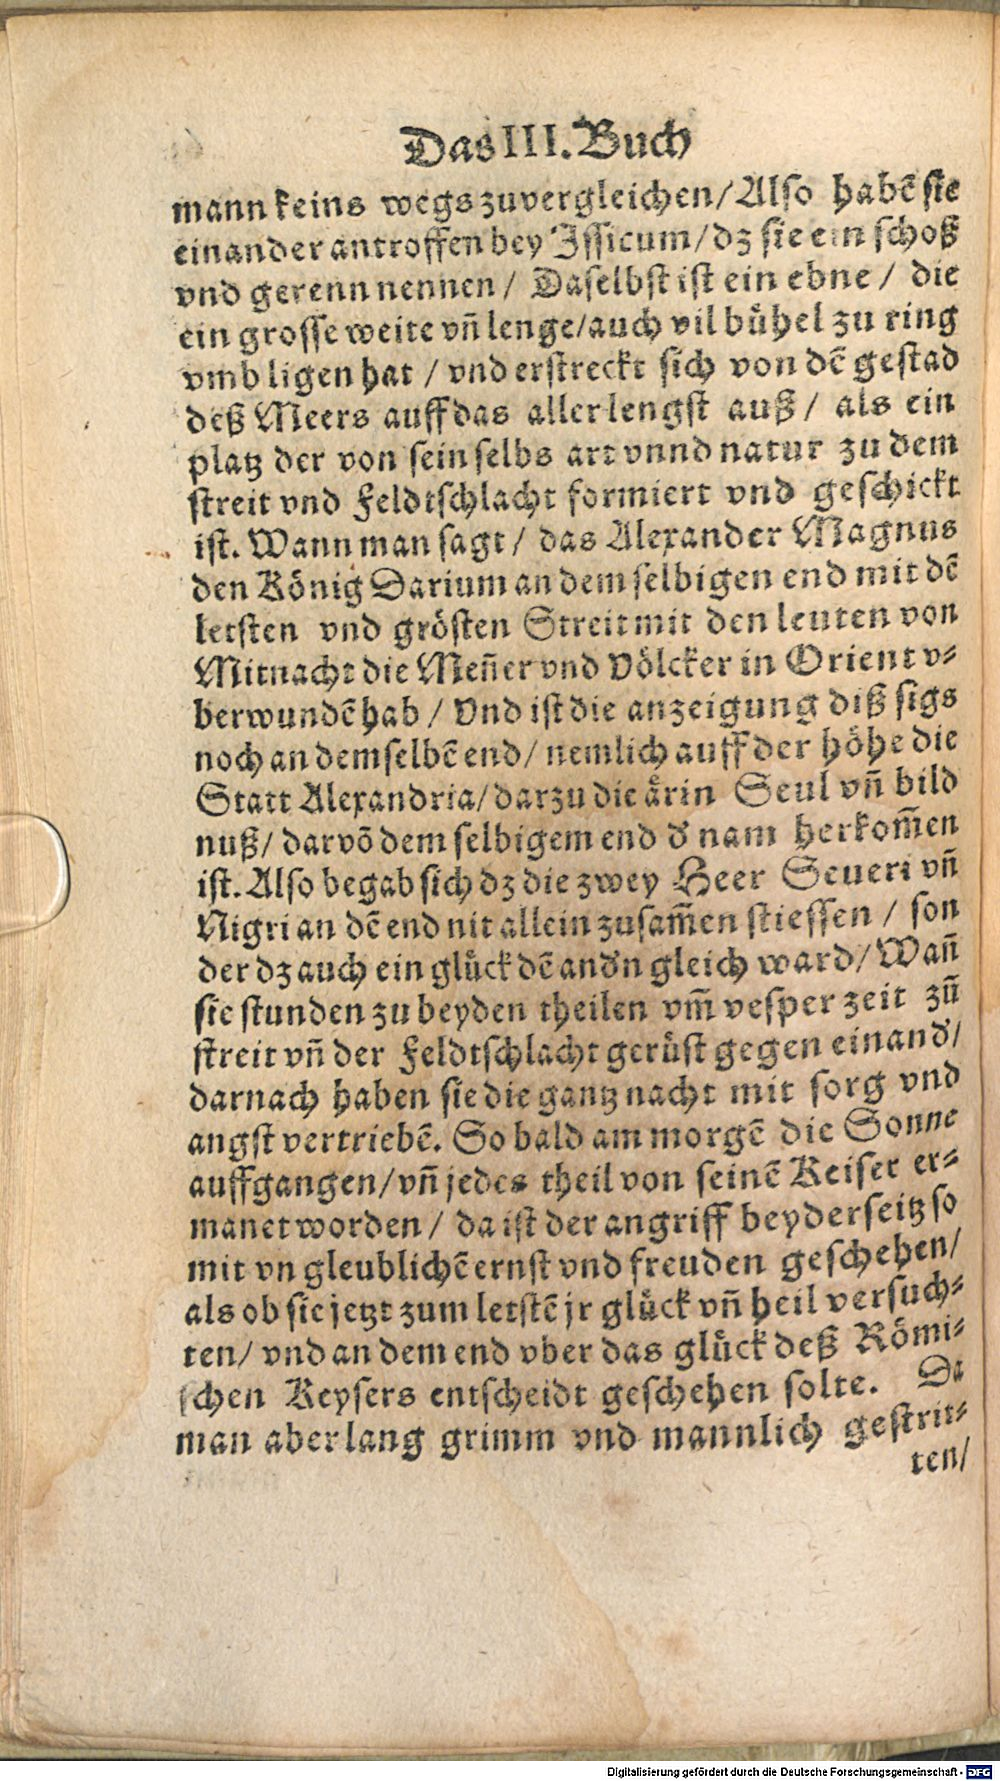 Das III. Buch
mann keins wegs zuvergleichen/ Also habē sie
einander antroffen bey Issicum/ dz sie ein schoß
vnd gerenn nennen/ Daselbst ist ein ebne/ die
ein grosse weite vñ lenge/ auch vil bühel zu ring
vmb ligen hat/ vnd erstreckt sich von dē gestad
deß Meers auff das aller lengst auß/ als ein
platz der von sein selbs art vnnd natur zu dem
streit vnd Feldtschlacht formiert vnd geschickt
ist. Wann man sagt/ das Alexander Magnus
den König Darium an dem selbigen end mit dē
letsten vnd grösten Streit mit den leuten von
Mitnacht die Meñer vnd Völcker in Orient v-
berwundē hab/ Vnd ist die anzeigung diß sigs
noch an demselbē end/ nemlich auff der höhe die
Statt Alexandria/ darzu die ärin Seul vñ bild
nuß/ darvō dem selbigem end d' nam herkom̄en
ist. Also begab sich dz die zwey Heer Seueri vñ
Nigri an dē end nit allein zusam̄en stiessen/ son
der dz auch ein glück dē and'n gleich ward/ Wañ
sie stunden zu beyden theilen vm̄ vesper zeit zū
streit vñ der Feldtschlacht gerüst gegen einand'/
darnach haben sie die gantz nacht mit sorg vnd
angst vertriebē. So bald am morgē die Sonne
auffgangen/ vñ jedes theil von seinē Keiser er-
manet worden/ da ist der angriff beyderseitz so
mit vngleublichē ernst vnd freuden geschehen/
als ob sie jetzt zum letstē jr glück vñ heil versuch-
ten/ vnd an dem end vber das glück deß Römi-
schen Keysers entscheidt geschehen solte. Da
man aber lang grimm vnd mannlich gestrit-
ten/
Digitalisierung gefördert durch die Deutsche Forschungsgemeinschaft - DFG